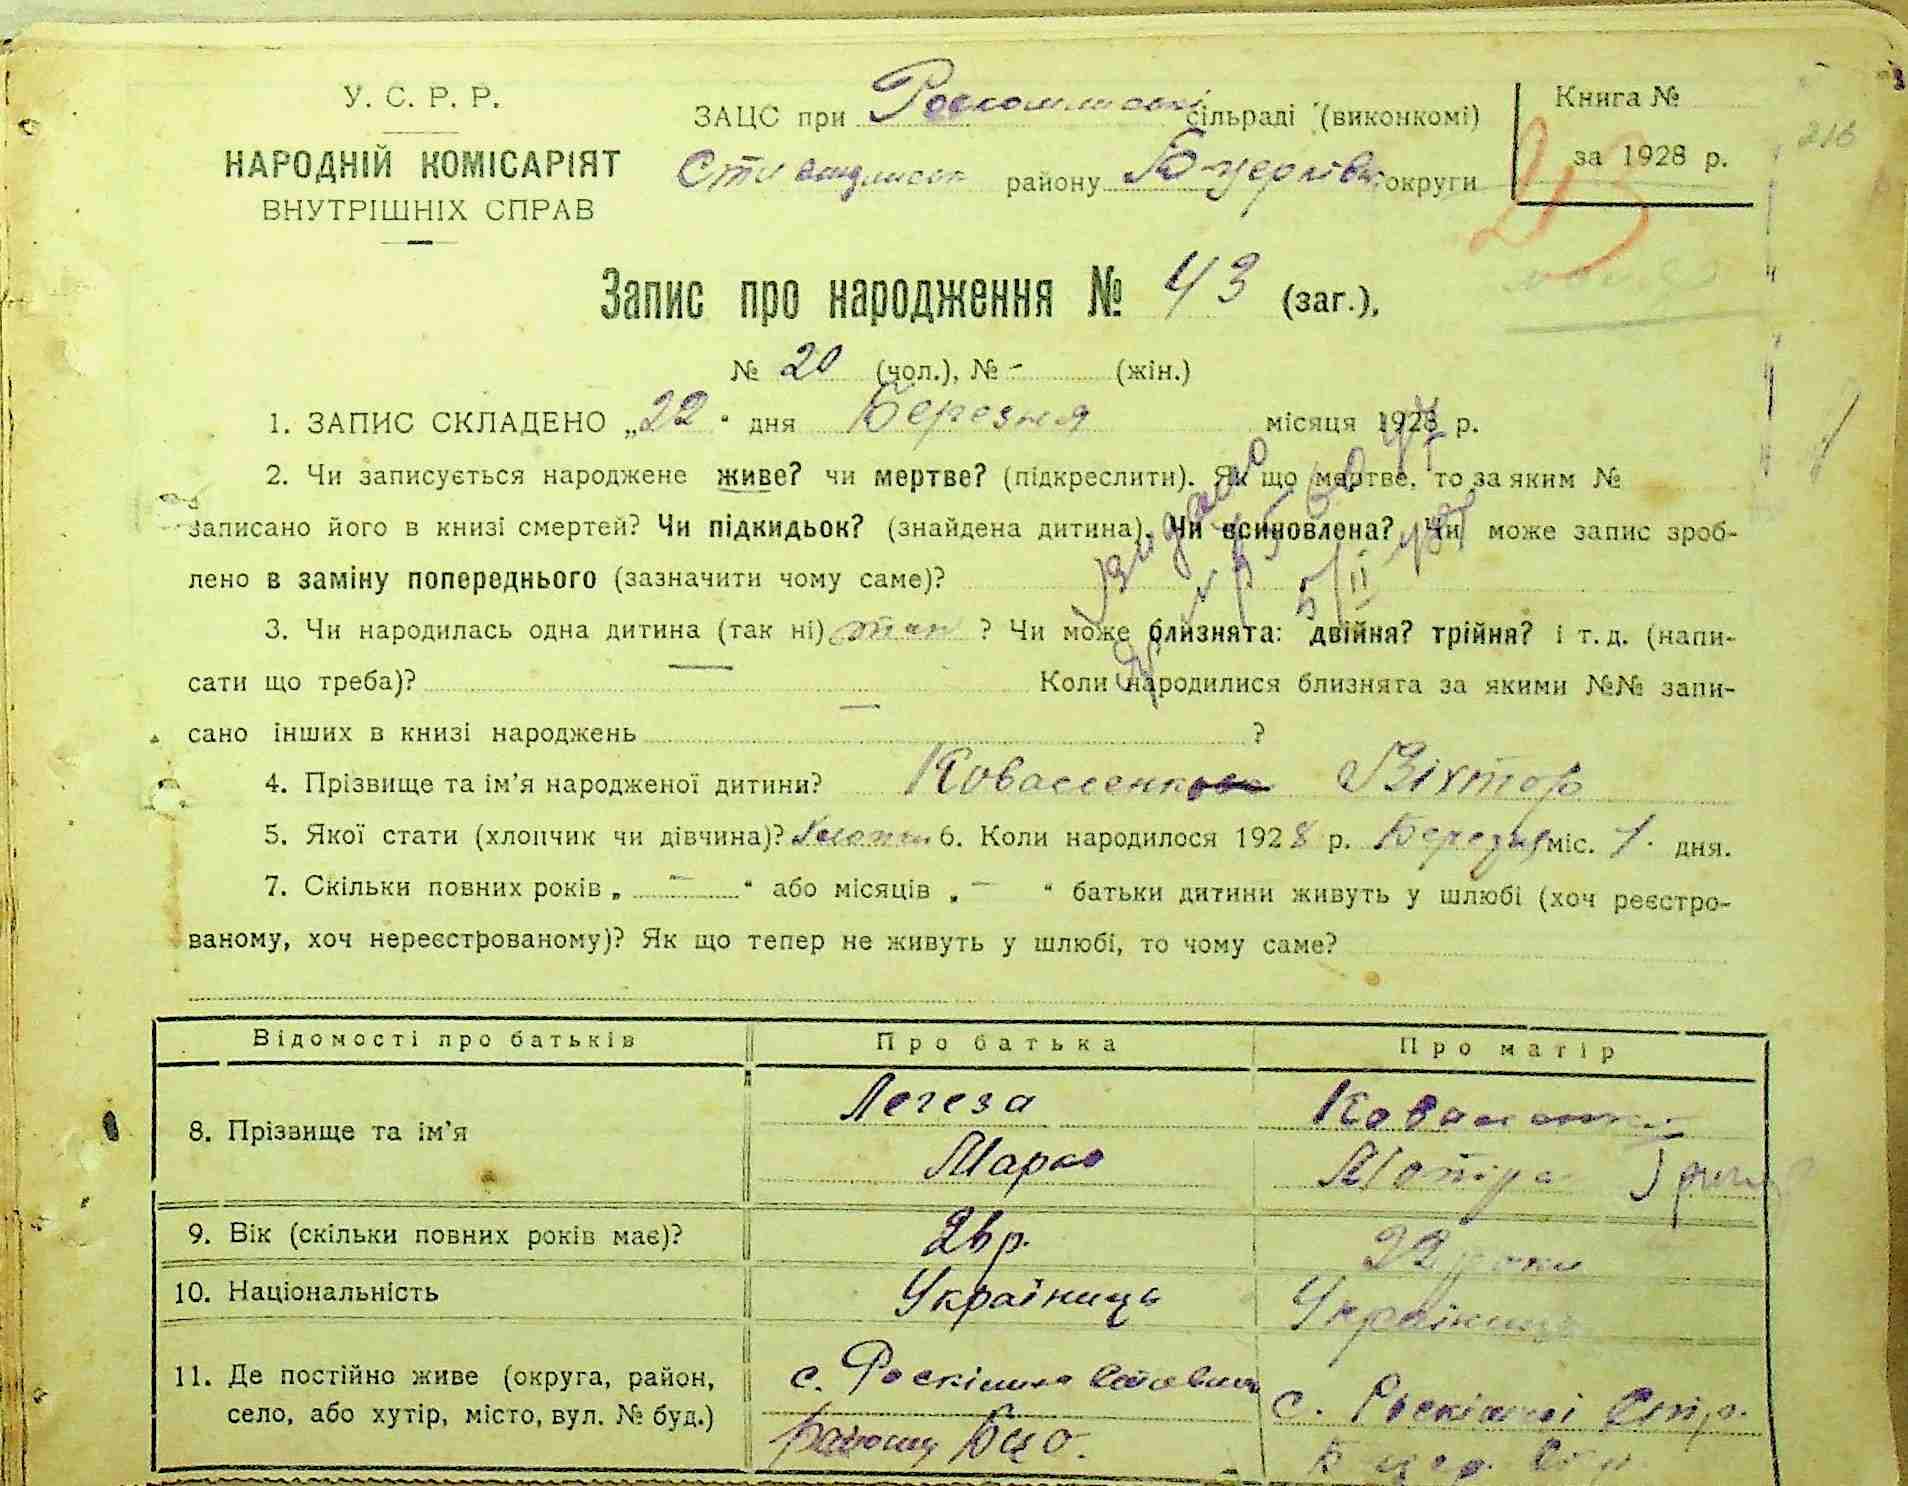 У. С. Р. Р.
НАРОДНІЙ КОМІСАРІЯТ
ВНУТРІШНІХ СПРАВ
ЗАЦС при сільраді (виконкомі)
району округи
Книга №
за 1928 р.
216
Запис про народження № 43 (заг.),
№ 20 (чол.), № - (жін.)
1. ЗАПИС СКЛАДЕНО „22" дня Березня місяця 1928 р.
2. Чи записується народжене живе? чи мертве? (підкреслити). Як що мертве, то за яким №
записано його в книзі смертей? Чи підкидьок? (знайдена дитина). Чи всиновлена? Чи може запис зроб-
лено в заміну попереднього (зазначити чому саме)?
Видано
5/II
3. Чи народилась одна дитина (так ні) так ? Чи може близнята: двійня? трійня? і т. д. (напи-
сати що треба)? — Коли народилися близнята за якими №№ запи-
сано інших в книзі народжень — ?
4. Прізвище та ім'я народженої дитини? Віктор
5. Якої стати (хлопчик чи дівчина)? 6. Коли народилося 1928 р. Березня міс. 1. дня.
7. Скільки повних років „ - " або місяців „ - " батьки дитини живуть у шлюбі (хоч реєстро-
ваному, хоч нереєстрованому)? Як що тепер не живуть у шлюбі, то чому саме?
Відомості про батьків Про батька Про матір
8. Прізвище та ім'я
Легеза
Марко
Мотря
9. Вік (скільки повних років має)? 26 р. 22 роки
10. Національність Українець
11. Де постійно живе (округа, район,
село, або хутір, місто, вул. № буд.)
с.
району
с.